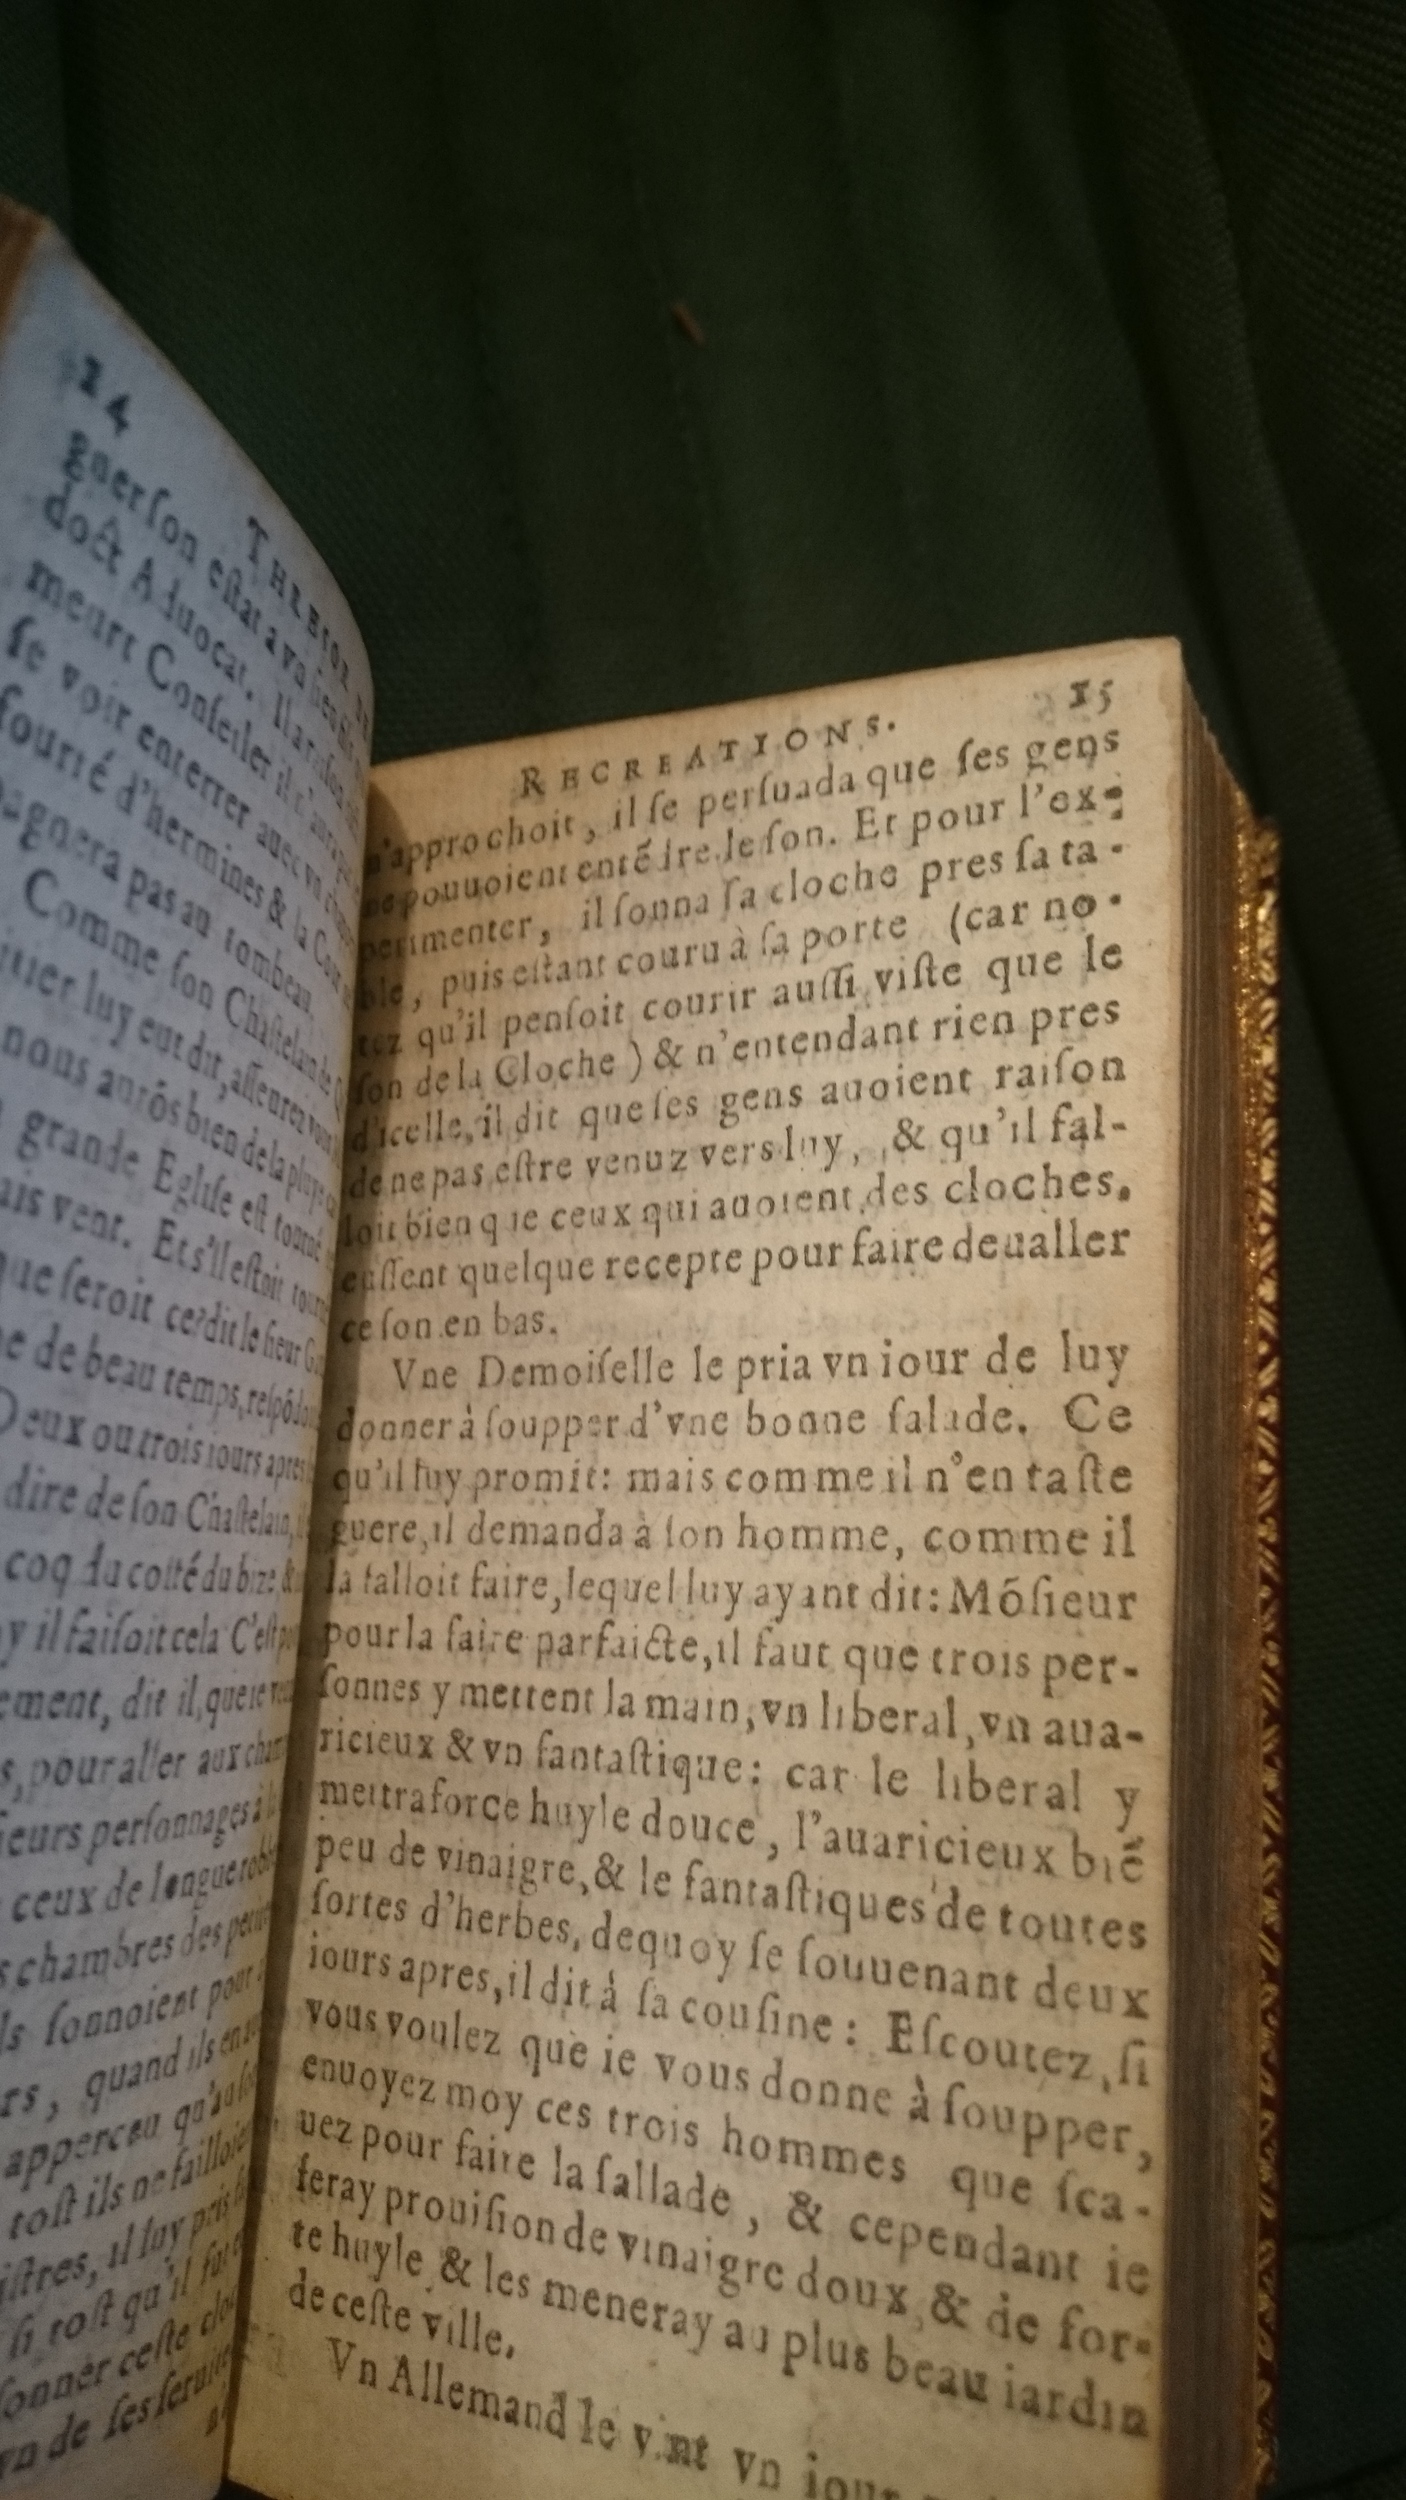 14
THRESOR
guer son estat a vn sien
doct Aduocat. Il
meurt Conseiler il
se voir enterrer auec vn
fourré d'hermines & la Cour
pas au tombeau.
Comme son Chastelain de
luy eut dit, asseurez vous
nous aurõs bien de la pluye
grande Eglise est tourné
vent. Et s'il estoit
que seroit ce? dit le sieur
de beau temps, respõd
Deux ou trois iours apres
dire de son Chastelain,
coq du costé du bize &
il faisoit cela C'est
dit il, que ie
pour aller aux
personnages à
ceux de longue robbe
chambres des
sonnoient pour
quand ils en
apperceu qu'au
tost ils ne failloient
il luy pris
si tost qu'il fut
sonner ceste
vn de ses
RECREATIONS. 15
n'approchoit, il se persuada que ses gens
ne pouuoient entẽdre le son. Et pour l'ex-
perimenter, il sonna sa cloche pres sa ta-
ble, puis estant couru à sa porte (car no-
tez qu'il pensoit courir aussi viste que le
son de la Cloche) & n'entendant rien pres
d'icelle, il dit que ses gens auoient raison
de ne pas estre venuz vers luy, & qu'il fal-
loit bien que ceux qui auoient des cloches,
eussent quelque recepte pour faire deualler
ce son en bas.
Vne Demoiselle le pria vn iour de luy
donner à soupper d'vne bonne salade. Ce
qu'il luy promit: mais comme il n'en taste
guere, il demanda à son homme, comme il
la falloit faire, lequel luy ayant dit: Mõsieur
pour la faire parfaicte, il faut que trois per-
sonnes y mettent la main, vn liberal, vn aua-
ricieux & vn fantastique: car le liberal y
mettra force huyle douce, l'auaricieux biẽ
peu de vinaigre, & le fantastiques de toutes
sortes d'herbes, dequoy se souuenant deux
iours apres, il dit à sa cousine: Escoutez, si
vous voulez que ie vous donne à soupper,
enuoyez moy ces trois hommes que sca-
uez pour faire la sallade, & cependant ie
feray prouision de vinaigre doux, & de for-
te huyle & les meneray au plus beau iardin
de ceste ville.
Vn Allemand le vint vn iour